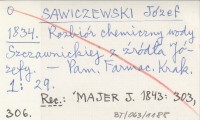 SAWICZEWSKI Józef
1834. Rozbiór chemiczny wody
Szczawnickiej z źródła Jó-
zefy. — Pam. Farmac. Krak.
1: 29.
Rec.: MAJER J. 1843: 303,
306.
BJ/063/1185